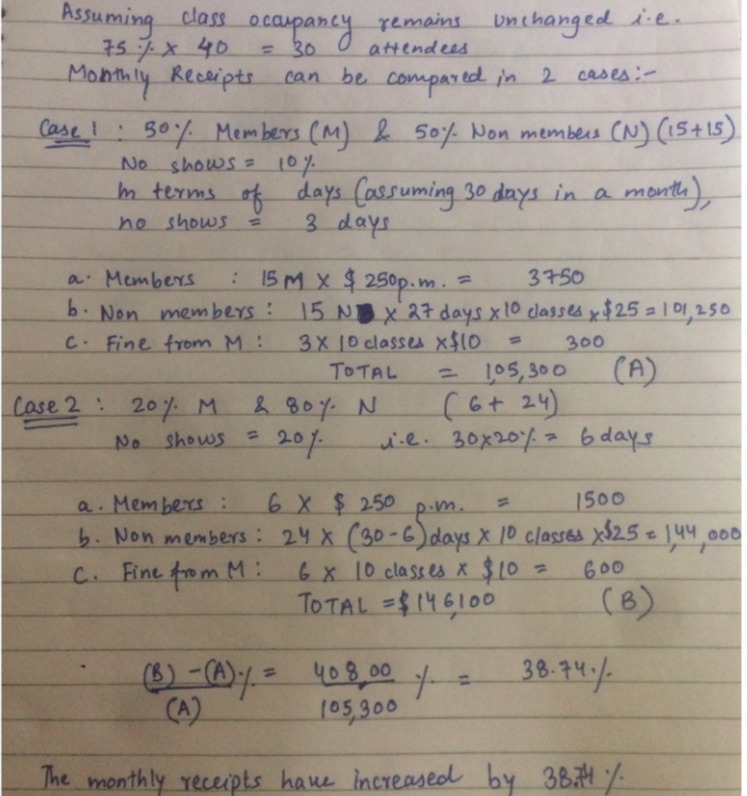 Assuming class occupancy remains unchanged i.e.
75 % x 40 = 30 attendees
Monthly Receipts can be compared in 2 cases:-
Case 1 : 50% Members (M) & 50% Non members (N) (15+15)
No shows = 10%
In terms of days (assuming 30 days in a month),
no shows = 3 days
a. Members : 15 M x $ 250 p.m. = 3750
b. Non members : 15 N x 27 days x 10 classes x $25 = 101,250
C. Fine from M : 3 x 10 classes x $10 = 300
TOTAL = 105,300 (A)
Case 2 : 20% M & 80% N (6 + 24)
No shows = 20% i.e. 30x20% = 6 days
a. Members : 6 x $ 250 p.m. = 1500
b. Non members : 24 x (30-6) days x 10 classes x $25 = 1,44,000
C. Fine from M : 6 x 10 classes x $10 = 600
TOTAL = $ 146,100 (B)
(B) - (A) % = 408,00 % = 38.74 %
(A) 105,300
The monthly receipts have increased by 38.74 %